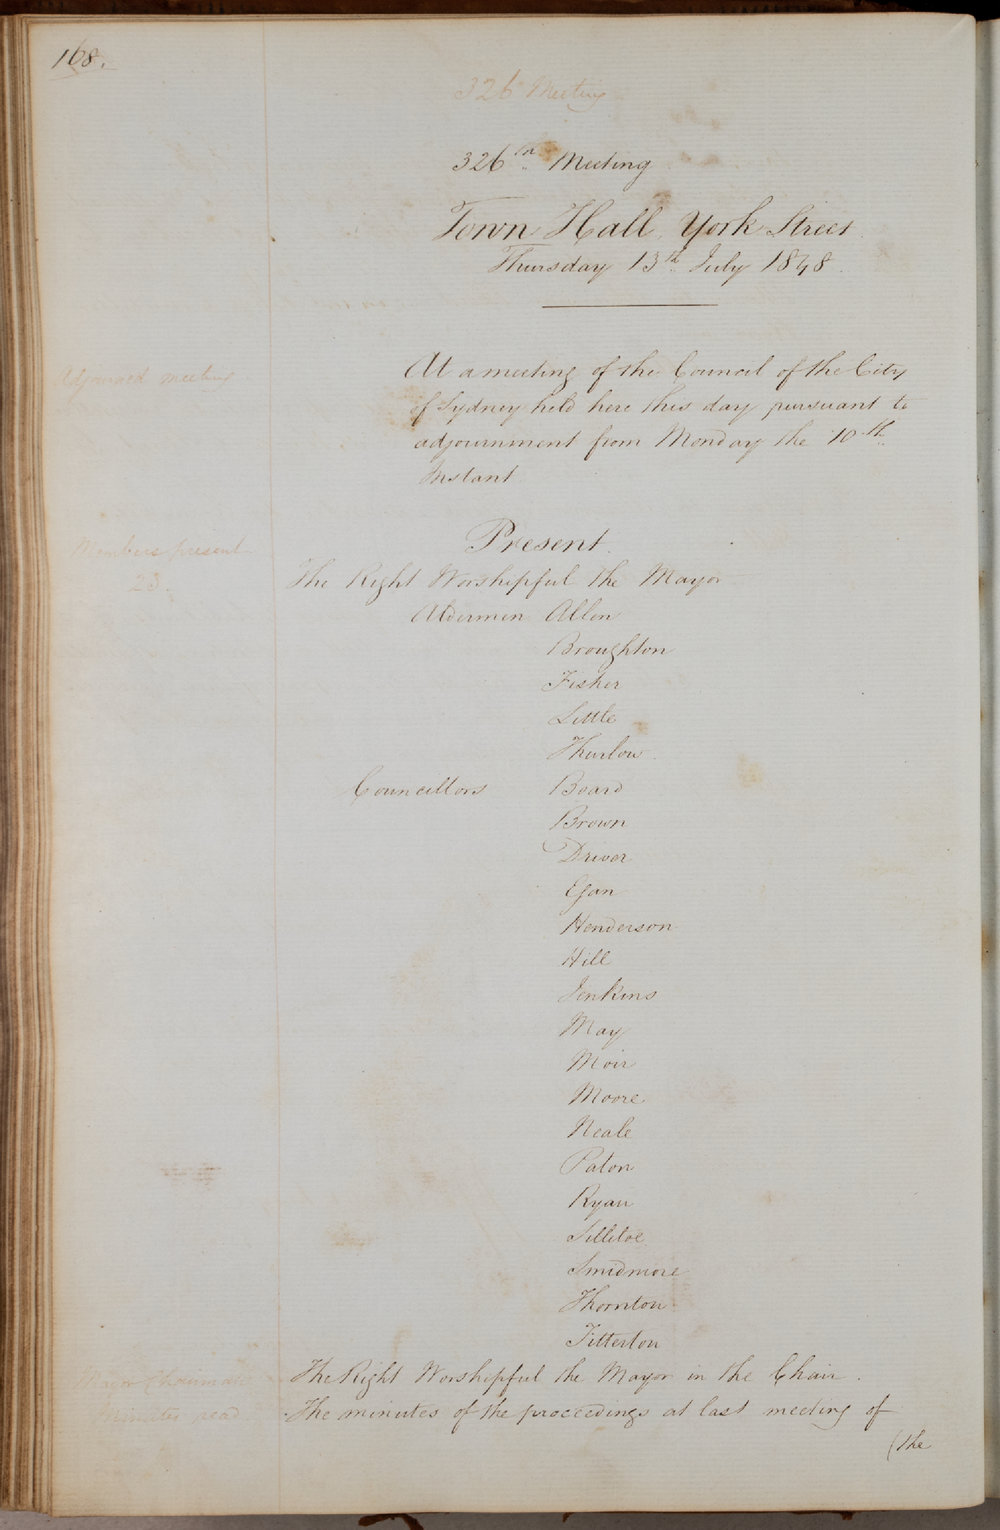 168.
326 Meeting
326th Meeting
Town Hall, York Street.
Thursday 13th July 1848.
Adjourned meeting
At a meeting of the Council of the City
of Sydney held here this day pursuant to
adjournment from Monday the 10th
Instant.
Members present
23.
Present.
The Right Worshipful the Mayor
Aldermen Allen
Broughton
Fisher
Little
Thurlow.
Councillors Beard
Brown
Driver
Egan
Henderson
Hill
Jenkins
May
Moir
Moore
Neale
Paton
Ryan
Sillitoe
Smidmore
Thornton
Titterton
Chairman
The Right Worshipful the Mayor in the Chair.
Minutes read
The minutes of the proceedings at last meeting of
(the